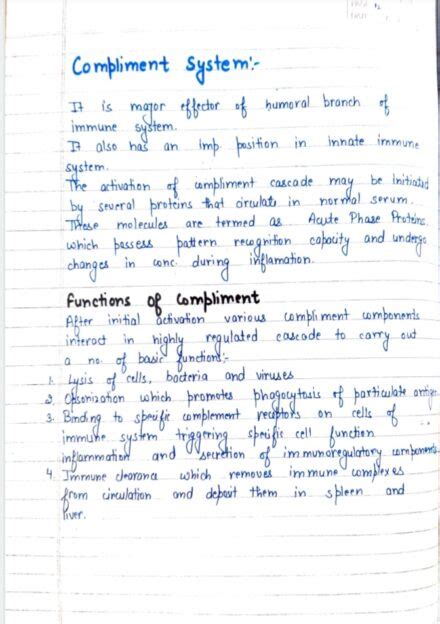 Compliment System:-
It is major effector of humoral branch of
immune system.
It also has an imp. position in innate immune
system.
The activation of compliment cascade may be initiated
by several proteins that circulate in normal serum.
These molecules are termed as Acute Phase Proteins
which possess pattern recognition capacity and undergo
changes in conc. during inflamation.
Functions of Compliment
After initial activation various compliment components
interact in highly regulated cascade to carry out
a no. of basic functions:-
1. Lysis of cells, bacteria and viruses
2. Opsonization which promotes phagocytosis of particulate antigen
3. Binding to specific complement receptors on cells of
immune system triggering specific cell function
inflammation and secretion of immunoregulatory components.
4. Immune clearance which removes immune complexes
from circulation and deposit them in spleen and
liver.